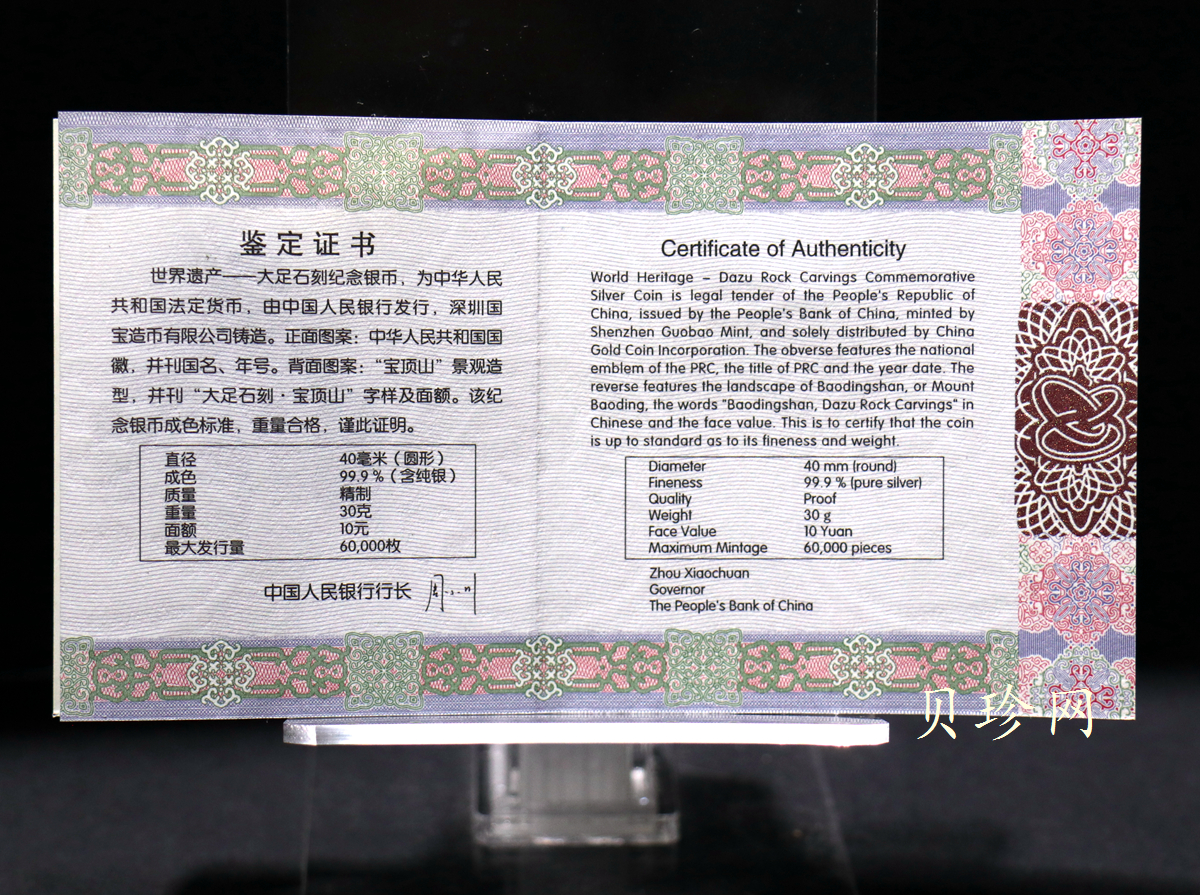 鉴定证书
世界遗产——大足石刻纪念银币，为中华人民
共和国法定货币，由中国人民银行发行，深圳国
宝造币有限公司铸造。正面图案：中华人民共和国国
徽，并刊国名、年号。背面图案：“宝顶山”景观造
型，并刊“大足石刻·宝顶山”字样及面额。该纪
念银币成色标准，重量合格，谨此证明。
直径 40毫米（圆形）
成色 99.9％（含纯银）
质量 精制
重量 30克
面额 10元
最大发行量 60,000枚
中国人民银行行长
Certificate of Authenticity
World Heritage – Dazu Rock Carvings Commemorative
Silver Coin is legal tender of the People's Republic of
China, issued by the People's Bank of China, minted by
Shenzhen Guobao Mint, and solely distributed by China
Gold Coin Incorporation. The obverse features the national
emblem of the PRC, the title of PRC and the year date. The
reverse features the landscape of Baodingshan, or Mount
Baoding, the words "Baodingshan, Dazu Rock Carvings" in
Chinese and the face value. This is to certify that the coin
is up to standard as to its fineness and weight.
Diameter 40 mm (round)
Fineness 99.9 % (pure silver)
Quality Proof
Weight 30 g
Face Value 10 Yuan
Maximum Mintage 60,000 pieces
Zhou Xiaochuan
Governor
The People's Bank of China
贝珍网